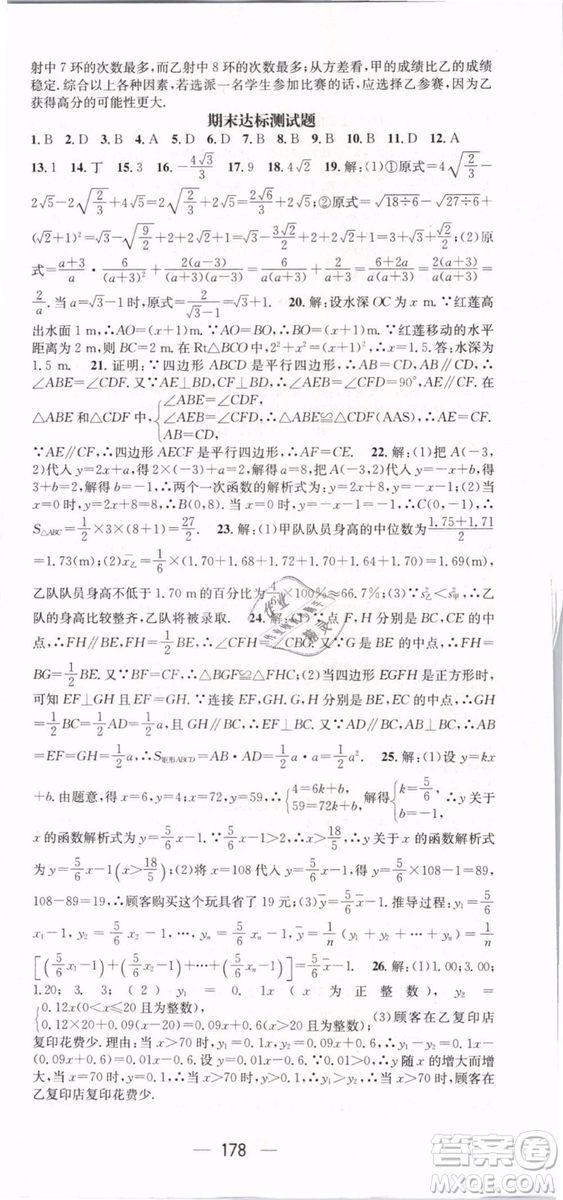 射中 7 环的次数最多,而乙射中 8 环的次数最多;从方差看,甲的成绩比乙的成绩
稳定. 综合以上各种因素,若选派一名学生参加比赛的话,应选择乙参赛,因为乙
获得高分的可能性更大.
期末达标测试题
1. B 2. D 3. B 4. C 5. D 6. D 7. B 8. D 9. B 10. B 11. D 12. A
13. 1 14. 丁 15. 16. -4√3/3 17. 9 18. 4√3 19. 解:(1)①原式=4√(2/3)-
2√5-2√(2/3)+4√5=2√(2/3)+2√5=2√6/3+2√5;②原式=√(18÷6)-√(27÷6)+
(√2+1)²=√3-√(9/2)+2+2√2+1=√3-3√2/2+2+2√2+1=√3+√2/2+3;(2)原
式=(a+3)/a·6/(a+3)²+2(a-3)/(a+3)(a-3)=6/a(a+3)+2/(a+3)=(6+2a)/a(a+3)=2(a+3)/a(a+3)=
2/a. 当 a=√3-1 时,原式=2/(√3-1)=√3+1. 20. 解:设水深 OC 为 x m. ∵红莲高
出水面 1 m,∴AO=(x+1)m,∴BO=AO=(x+1)m. ∵红莲移动的水平
距离为 2 m,∴BC=2. 在 Rt△BCO 中,2²+x²=(x+1)²,∴x=1.5. 答:水深为
1.5 m. 21. 证明:∵四边形 ABCD 是平行四边形,∴AB=CD,AB∥CD,∴
∠ABE=∠CDF. 又∵AE⊥BD,CF⊥BD,∴∠AEB=∠CFD=90°,AE∥CF. 在
△ABE 和△CDF 中{∠ABE=∠CDF, ∠AEB=∠CFD, AB=CD, ∴△ABE≌△CDF(AAS),∴AE=CF.
∵AE∥CF,∴四边形 AECF 是平行四边形. 22. 解:(1)把 A(-3,
2)代入 y=2x+a,得-6+a=2,解得 a=8;把 A(-3,2)代入 y=-x+b,得
3+b=2,解得 b=-1,∴两个一次函数的解析式为 y=2x+8,y=-x-1;(2)当
x=0 时,y=2x+8=8,∴B(0,8). 当 x=0 时,y=-x-1=-1,∴C(0,-1),∴
S△ABC=1/2×3×(8+1)=27/2. 23. 解:(1)甲队队员身高的中位数为(1.75+1.71)/2
=1.73(m);(2)x̄乙=1/6×(1.70+1.68+1.72+1.70+1.64+1.76)=1.70(m),∴
乙队队员身高不低于 1.70 m 的百分比为4/6×100%≈66.7%;(3)∵s²乙<s²甲,
∴乙队的身高比较整齐,乙队将被录取. 24. 解:(1)∵点 F,H 分别是 BC,CE 的中
点,∴FH∥BE,FH=1/2BE,∴∠CFH=∠CBG. ∵点 G 是 BE 的中点,∴FH=
BG=1/2BE. 又∵BF=CF,∴△BGF≌△FHC;(2)当四边形 EGFH 是正方形时,
可知 EF⊥GH 且 EF=GH. ∵连接 EF,GH,G,H 分别是 BE,EC 的中点,∴GH=
1/2BC=1/2AD=1/2a,且 GH∥BC,∴EF⊥BC. ∵AD∥BC,AB⊥BC,∴AB
=EF=GH=1/2a,∴S矩形ABCD=AB·AD=1/2a·a=1/2a². 25. 解:(1)设 y=kx
+b. 由题意,得 x=6 时,y=4,x=72 时,y=59,∴{4=6k+b, 59=72k+b, 解得{k=5/6, b=-1, ∴y 关于
x 的函数解析式为 y=5/6x-1. ∵5/6x-1>2,∴5/6x>3,∴x>18/5,∴y 关于 x 的函数解析式
为 y=5/6x-1(x>18/5);(2)将 x=108 代入 y=5/6x-1,得 y=5/6×108-1=89,
108-89=19(元),∴顾客购买这个玩具省了 19 元;(3)ȳ=5/6x̄-1. 推导过程:y₁=
5/6x₁-1,y₂=5/6x₂-1,…,yₙ=5/6xₙ-1,∴ȳ=1/n(y₁+y₂+…+yₙ)=1/n
[(5/6x₁-1)+(5/6x₂-1)+…+(5/6xₙ-1)]=5/6x̄-1. 26. 解:(1)1.00;3.00;
1.20;3.3;(2)y₁=0.1x(x≥0,且 x 为正整数),y₂=
{0.12x(0<x≤20,且 x 为正整数), 0.12×20+0.09(x-20)=0.09x+0.6(x>20,且 x 为整数); (3)顾客在乙复印店
复印花费少. 理由:当 x>70 时,y₁=0.1x,y₂=0.09x+0.6,∴y₁-y₂=
0.1x-(0.09x+0.6)=0.01x-0.6. ∵0.01>0,∴y₁-y₂ 随 x 的增大而增大.
当 x=70 时,y=0.1,∴当 x>70 时,y>0.1,∴y₁>y₂,∴当 x>70 时,顾客在
乙复印店复印花费少.
178
答案圈
MXQE.COM